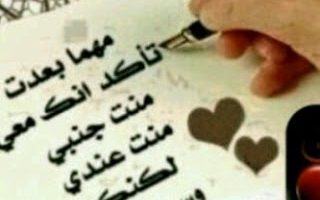 مهما بعدت
تأكد انك معي
منت جنبي
منت عندي
لكنك